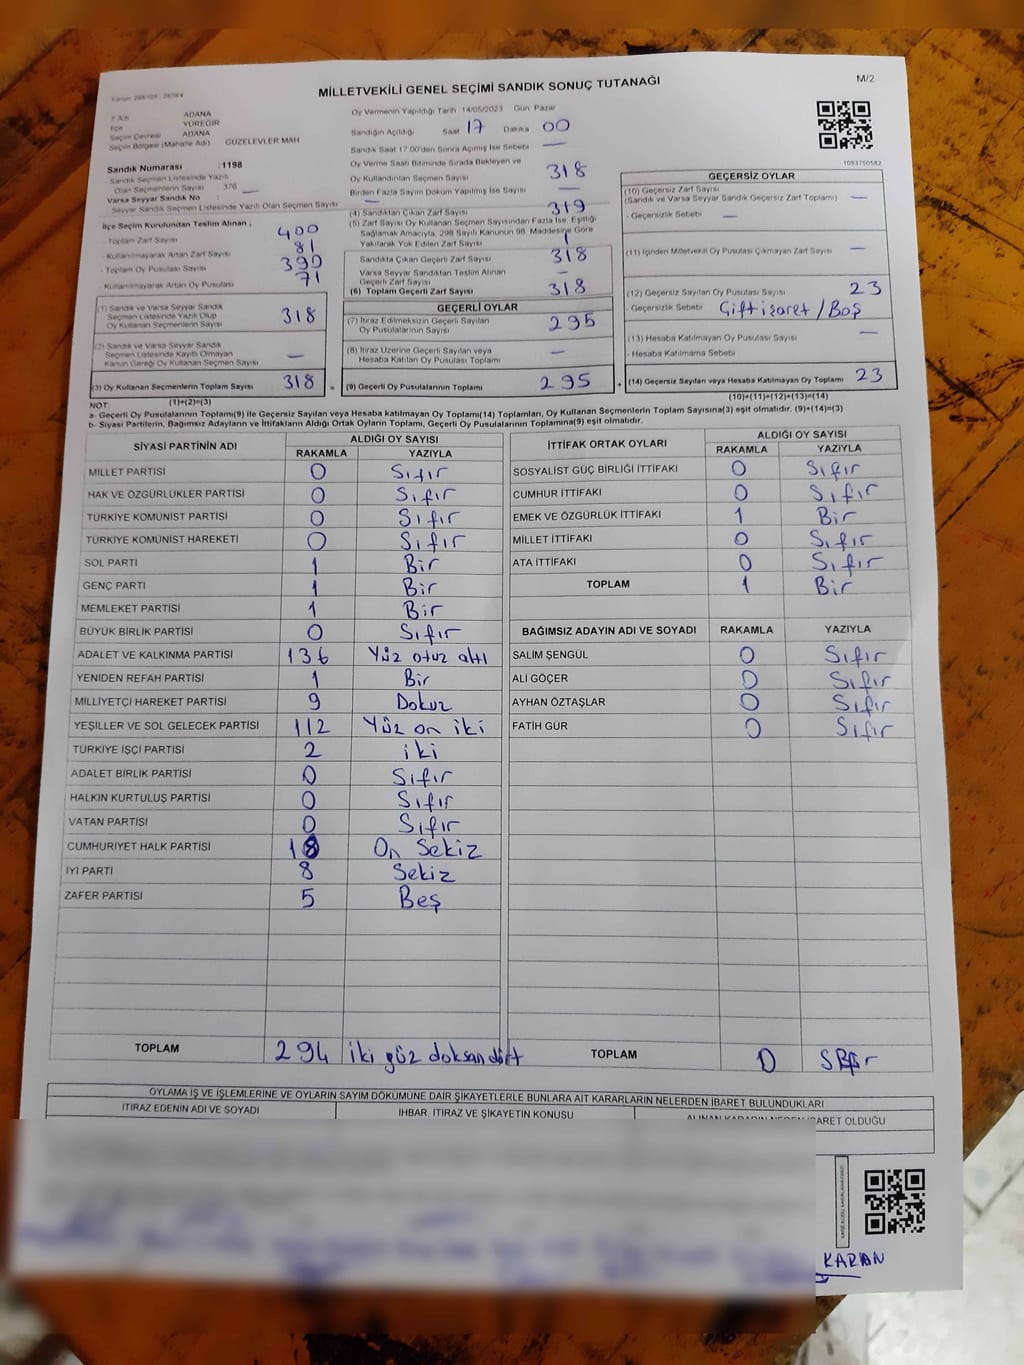 MİLLETVEKİLİ GENEL SEÇİMİ SANDIK SONUÇ TUTANAĞI
M/2
İl Adı ADANA
İlçe YÜREĞİR
Seçim Çevresi ADANA
Seçim Bölgesi (Mahalle Adı) GÜZELEVLER MAH
Sandık Numarası : 1198
Sandık Seçmen Listesinde Yazılı
Olan Seçmenlerin Sayısı 376 —
Varsa Seyyar Sandık No :
Seyyar Sandık Seçmen Listesinde Yazılı Olan Seçmen Sayısı —
İlçe Seçim Kurulundan Teslim Alınan ,
- Toplam Zarf Sayısı 400
- Kullanılmayarak Artan Zarf Sayısı 81
- Toplam Oy Pusulası Sayısı 390
- Kullanılmayarak Artan Oy Pusulası 71
(1) Sandık ve Varsa Seyyar Sandık
Seçmen Listesinde Yazılı Olup
Oy Kullanan Seçmenlerin Sayısı 318
(2) Sandık ve Varsa Seyyar Sandık
Seçmen Listesinde Kayıtlı Olmayan
Kanun Gereği Oy Kullanan Seçmen Sayısı —
(3) Oy Kullanan Seçmenlerin Toplam Sayısı 318 =
(1)+(2)=(3)
Oy Vermenin Yapıldığı Tarih 14/05/2023 Gün Pazar
Sandığın Açıldığı Saat 17 Dakika 00
Sandık Saat 17:00'den Sonra Açılmış İse Sebebi —
Oy Verme Saati Bitiminde Sırada Bekleyen ve
Oy Kullandırılan Seçmen Sayısı 318
Birden Fazla Sayım Döküm Yapılmış İse Sayısı —
(4) Sandıktan Çıkan Zarf Sayısı 319
(5) Zarf Sayısı Oy Kullanan Seçmen Sayısından Fazla İse, Eşitliği
Sağlamak Amacıyla, 298 Sayılı Kanunun 98. Maddesine Göre
Yakılarak Yok Edilen Zarf Sayısı 1
Sandıkta Çıkan Geçerli Zarf Sayısı 318
Varsa Seyyar Sandıktan Teslim Alınan
Geçerli Zarf Sayısı —
(6) Toplam Geçerli Zarf Sayısı 318
GEÇERLİ OYLAR
(7) İtiraz Edilmeksizin Geçerli Sayılan
Oy Pusulalarının Sayısı 295
(8) İtiraz Üzerine Geçerli Sayılan veya
Hesaba Katılan Oy Pusulası Toplamı —
(9) Geçerli Oy Pusulalarının Toplamı 295 +
1083750582
GEÇERSİZ OYLAR
(10) Geçersiz Zarf Sayısı —
(Sandık ve Varsa Seyyar Sandık Geçersiz Zarf Toplamı)
- Geçersizlik Sebebi —
(11) İçinden Milletvekili Oy Pusulası Çıkmayan Zarf Sayısı —
(12) Geçersiz Sayılan Oy Pusulası Sayısı 23
- Geçersizlik Sebebi Çift işaret / Boş
(13) Hesaba Katılmayan Oy Pusulası Sayısı —
- Hesaba Katılmama Sebebi
(14) Geçersiz Sayılan veya Hesaba Katılmayan Oy Toplamı 23
(10)+(11)+(12)+(13)=(14)
NOT:
a- Geçerli Oy Pusulalarının Toplamı(9) ile Geçersiz Sayılan veya Hesaba katılmayan Oy Toplamı(14) Toplamları, Oy Kullanan Seçmenlerin Toplam Sayısına(3) eşit olmalıdır. (9)+(14)=(3)
b- Siyasi Partilerin, Bağımsız Adayların ve İttifakların Aldığı Ortak Oyların Toplamı, Geçerli Oy Pusulalarının Toplamına(9) eşit olmalıdır.
SİYASİ PARTİNİN ADI ALDIĞI OY SAYISI
RAKAMLA YAZIYLA
MİLLET PARTİSİ 0 Sıfır
HAK VE ÖZGÜRLÜKLER PARTİSİ 0 Sıfır
TÜRKİYE KOMÜNİST PARTİSİ 0 Sıfır
TÜRKİYE KOMÜNİST HAREKETİ 0 Sıfır
SOL PARTİ 1 Bir
GENÇ PARTİ 1 Bir
MEMLEKET PARTİSİ 1 Bir
BÜYÜK BİRLİK PARTİSİ 0 Sıfır
ADALET VE KALKINMA PARTİSİ 136 Yüz otuz altı
YENİDEN REFAH PARTİSİ 1 Bir
MİLLİYETÇİ HAREKET PARTİSİ 9 Dokuz
YEŞİLLER VE SOL GELECEK PARTİSİ 112 Yüz on iki
TÜRKİYE İŞÇİ PARTİSİ 2 iki
ADALET BİRLİK PARTİSİ 0 Sıfır
HALKIN KURTULUŞ PARTİSİ 0 Sıfır
VATAN PARTİSİ 0 Sıfır
CUMHURİYET HALK PARTİSİ 18 On Sekiz
İYİ PARTİ 8 Sekiz
ZAFER PARTİSİ 5 Beş
TOPLAM 294 iki yüz doksan dört
İTTİFAK ORTAK OYLARI ALDIĞI OY SAYISI
RAKAMLA YAZIYLA
SOSYALİST GÜÇ BİRLİĞİ İTTİFAKI 0 Sıfır
CUMHUR İTTİFAKI 0 Sıfır
EMEK VE ÖZGÜRLÜK İTTİFAKI 1 Bir
MİLLET İTTİFAKI 0 Sıfır
ATA İTTİFAKI 0 Sıfır
TOPLAM 1 Bir
BAĞIMSIZ ADAYIN ADI VE SOYADI RAKAMLA YAZIYLA
SALİM ŞENGÜL 0 Sıfır
ALİ GÖÇER 0 Sıfır
AYHAN ÖZTAŞLAR 0 Sıfır
FATİH GÜR 0 Sıfır
TOPLAM 0
OYLAMA İŞ VE İŞLEMLERİNE VE OYLARIN SAYIM DÖKÜMÜNE DAİR ŞİKAYETLERLE BUNLARA AİT KARARLARIN NELERDEN İBARET BULUNDUKLARI
İTİRAZ EDENİN ADI VE SOYADI İHBAR, İTİRAZ VE ŞİKAYETİN KONUSU ALINAN KARARIN NEDEN İBARET OLDUĞU